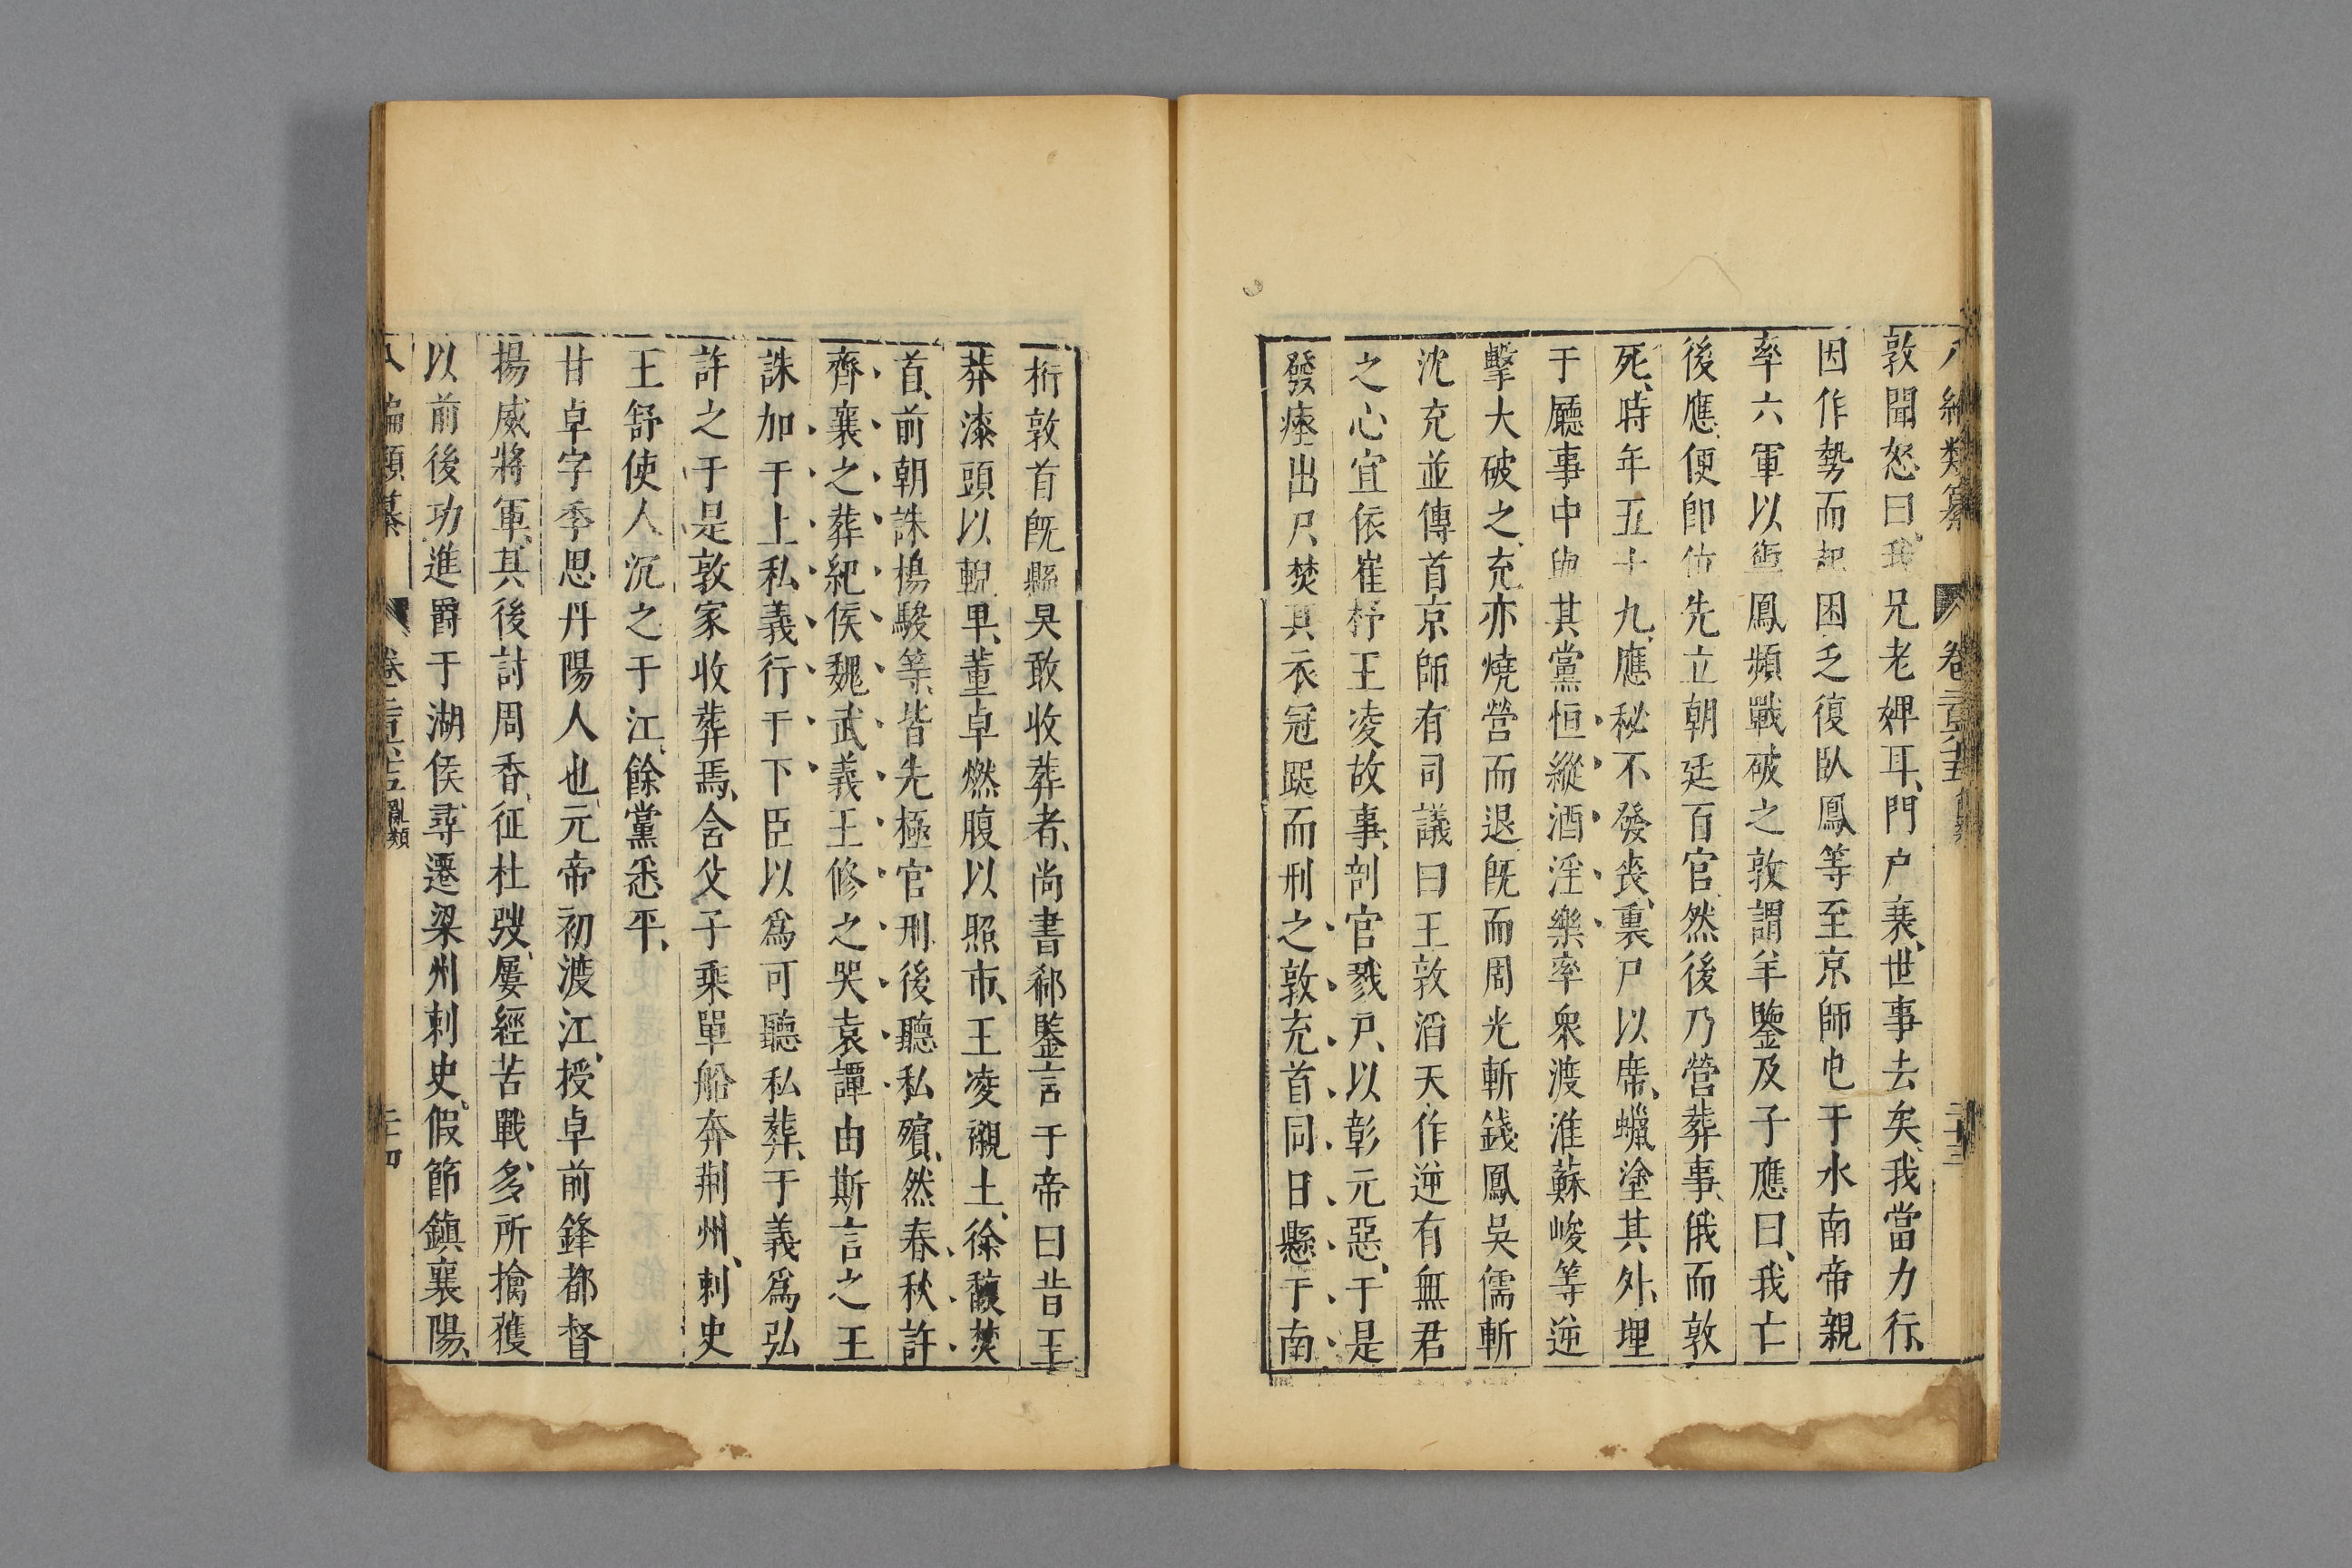 八編類纂 卷二百六五 二十三
敦聞怒曰、我兄老婢耳、門户衰、世事去矣、我當力行、
因作勢而起困乏復臥鳳等至京師屯于水南帝親
率六軍以御鳳頻戰破之敦謂羊鑒及子應曰、我亡
後應、便即位先立朝廷百官、然後乃營葬事、俄而敦
死、時年五十九、應秘不發喪、裏尸以席、蠟塗其外、埋
于廳事中與其黨恒縱酒淫樂率衆渡淮蘇峻等逆
擊大破之、充亦燒營而退既而周光斬錢鳳吳儒斬
沈充並傳首京師有司議曰王敦滔天作逆有無君
之心宜依崔杼王凌故事、剖官戮尸、以彰元惡、于是
發瘞出尸焚其衣冠跽而刑之敦充首同日懸于南
桁敦首既縣莫敢收葬者、尚書郗鑒言于帝曰昔王
莽漆頭以輗車、董卓燃腹以照市、王凌襯土、徐馥焚
首、前朝誅楊駿等、皆先極官刑、後聽私殯、然春秋許
齊襄之葬紀侯魏武義王修之哭袁譚由斯言之王
誅加于上私義行于下臣以爲可聽私葬、于義爲弘
許之于是敦家收葬焉、含父子乘單船奔荆州、刺史
王舒使人沉之于江、餘黨悉平、
甘卓字季思丹陽人也、元帝初渡江、授卓前鋒都督
揚威將軍、其後討周香、征杜弢、屢經苦戰、多所擒獲
以前後功進爵于湖侯、尋遷梁州刺史、假節鎮襄陽、
八編類纂 卷二百六五 亂類 二十四